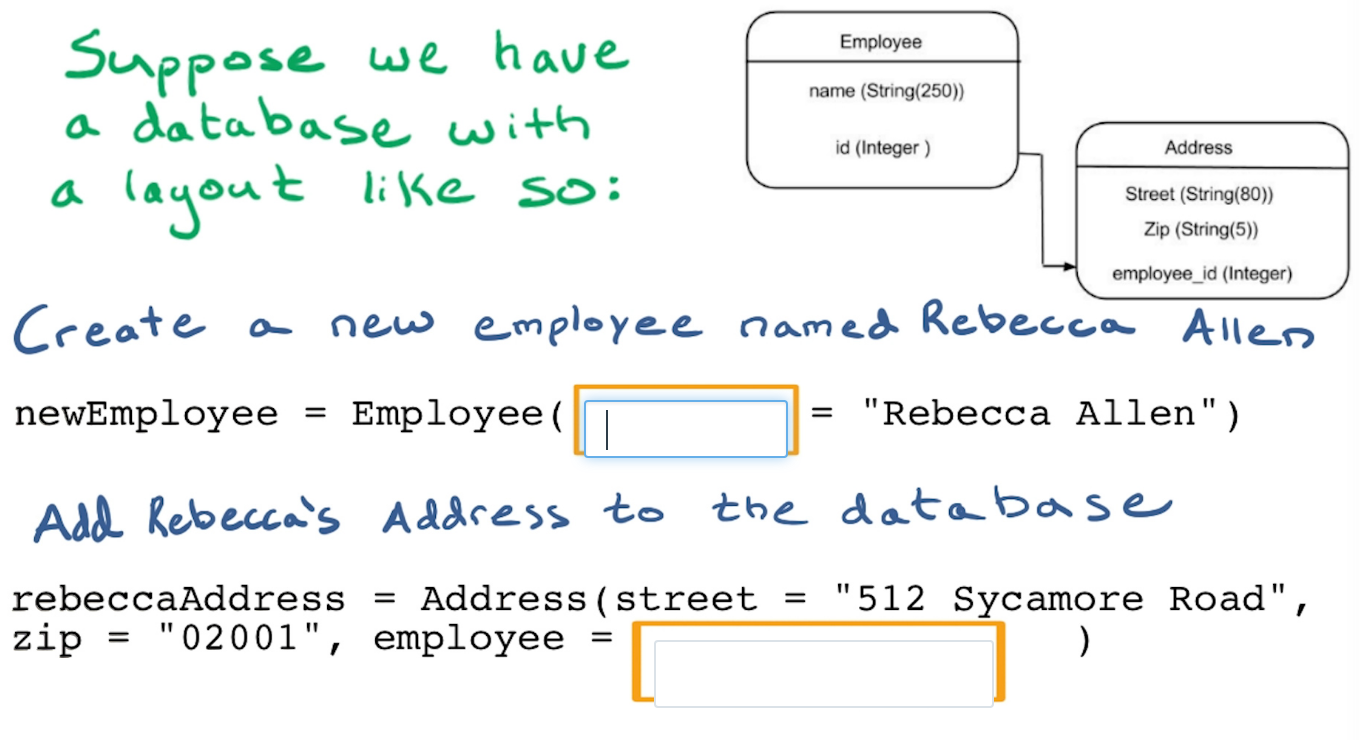 Suppose we have
a database with
a layout like so:
Employee
name (String(250))
id (Integer )
Address
Street (String(80))
Zip (String(5))
employee_id (Integer)
Create a new employee named Rebecca Allen
newEmployee = Employee( = "Rebecca Allen")
Add Rebecca's Address to the database
rebeccaAddress = Address(street = "512 Sycamore Road",
zip = "02001", employee = )